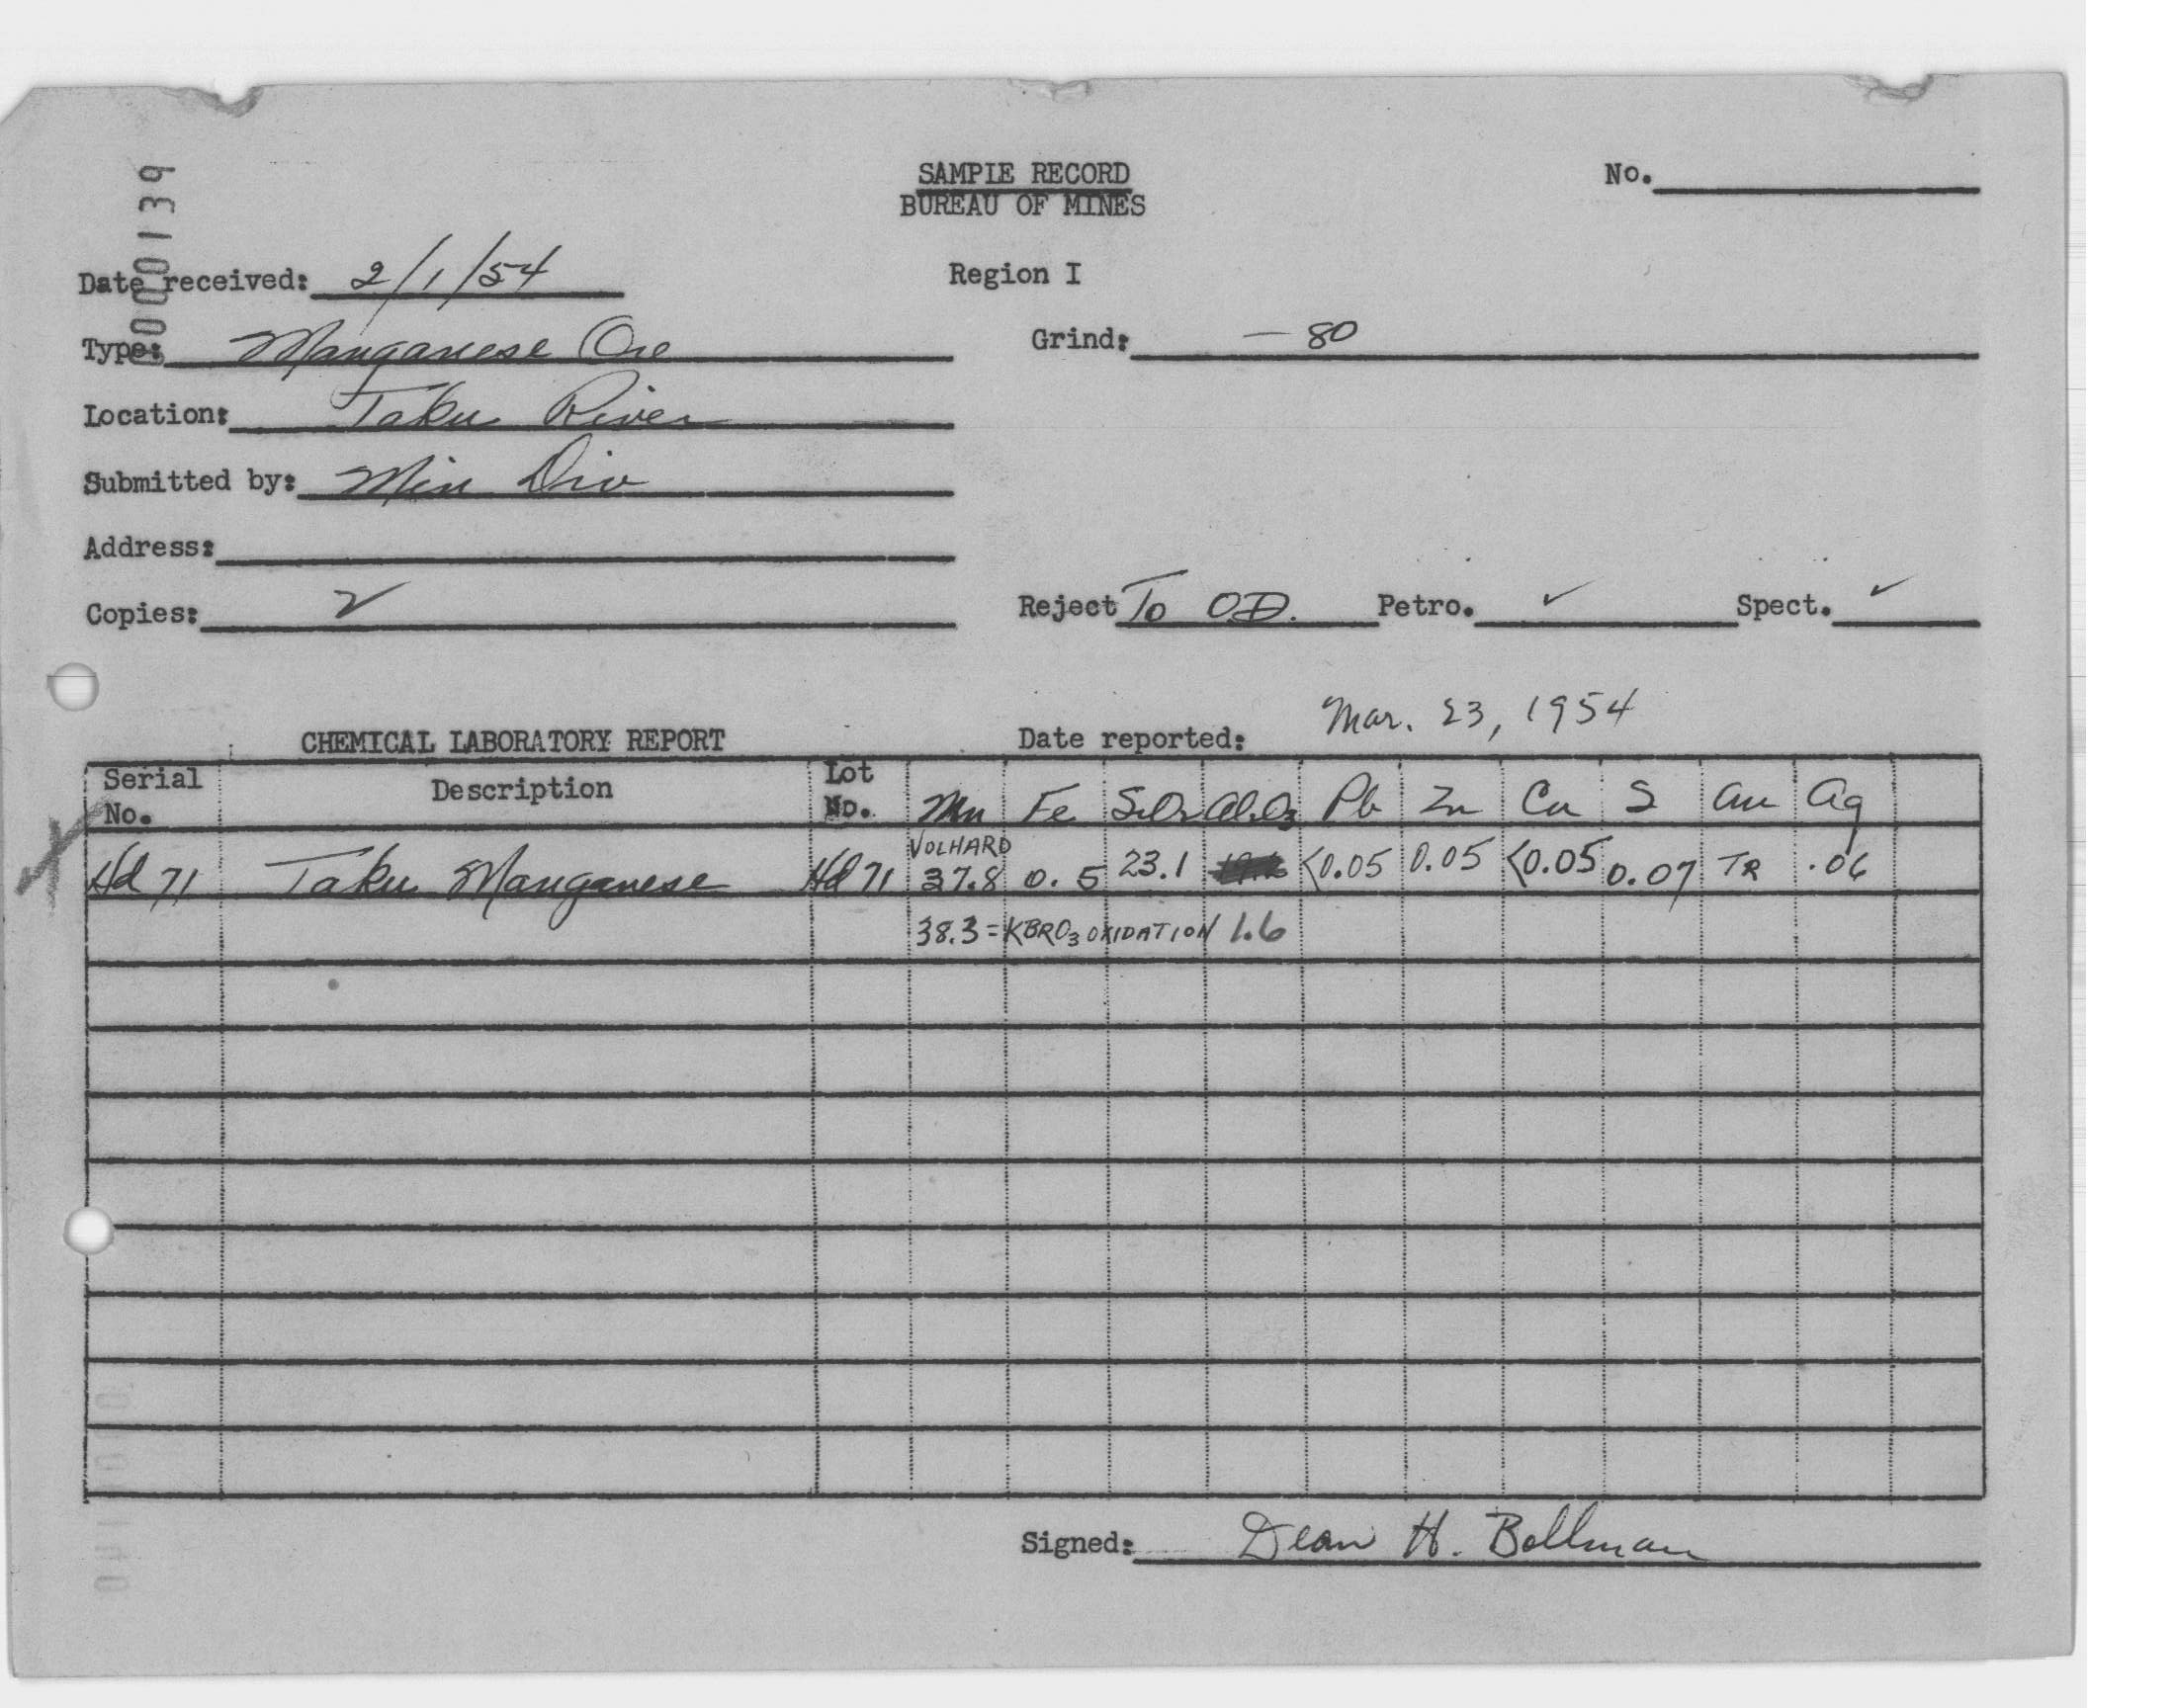 000139
SAMPLE RECORD
BUREAU OF MINES
No.
Date received: 2/1/54
Region I
Type: Manganese Ore
Grind: -80
Location: Taku River
Submitted by: Min Div
Address:
Copies: 2
Reject To OD. Petro. ✓ Spect. ✓
CHEMICAL LABORATORY REPORT
Date reported: Mar. 23, 1954
Serial No. Description Lot No. Mn Fe SiO2 Al2O3 Pb Zn Cu S Au Ag
VOLHARD
Hd 71 Taku Manganese Hd 71 37.8 0.5 23.1 <0.05 0.05 <0.05 0.07 TR .06
38.3 = KBRO3 OXIDATION 1.6
Signed: Dean H. Bollman